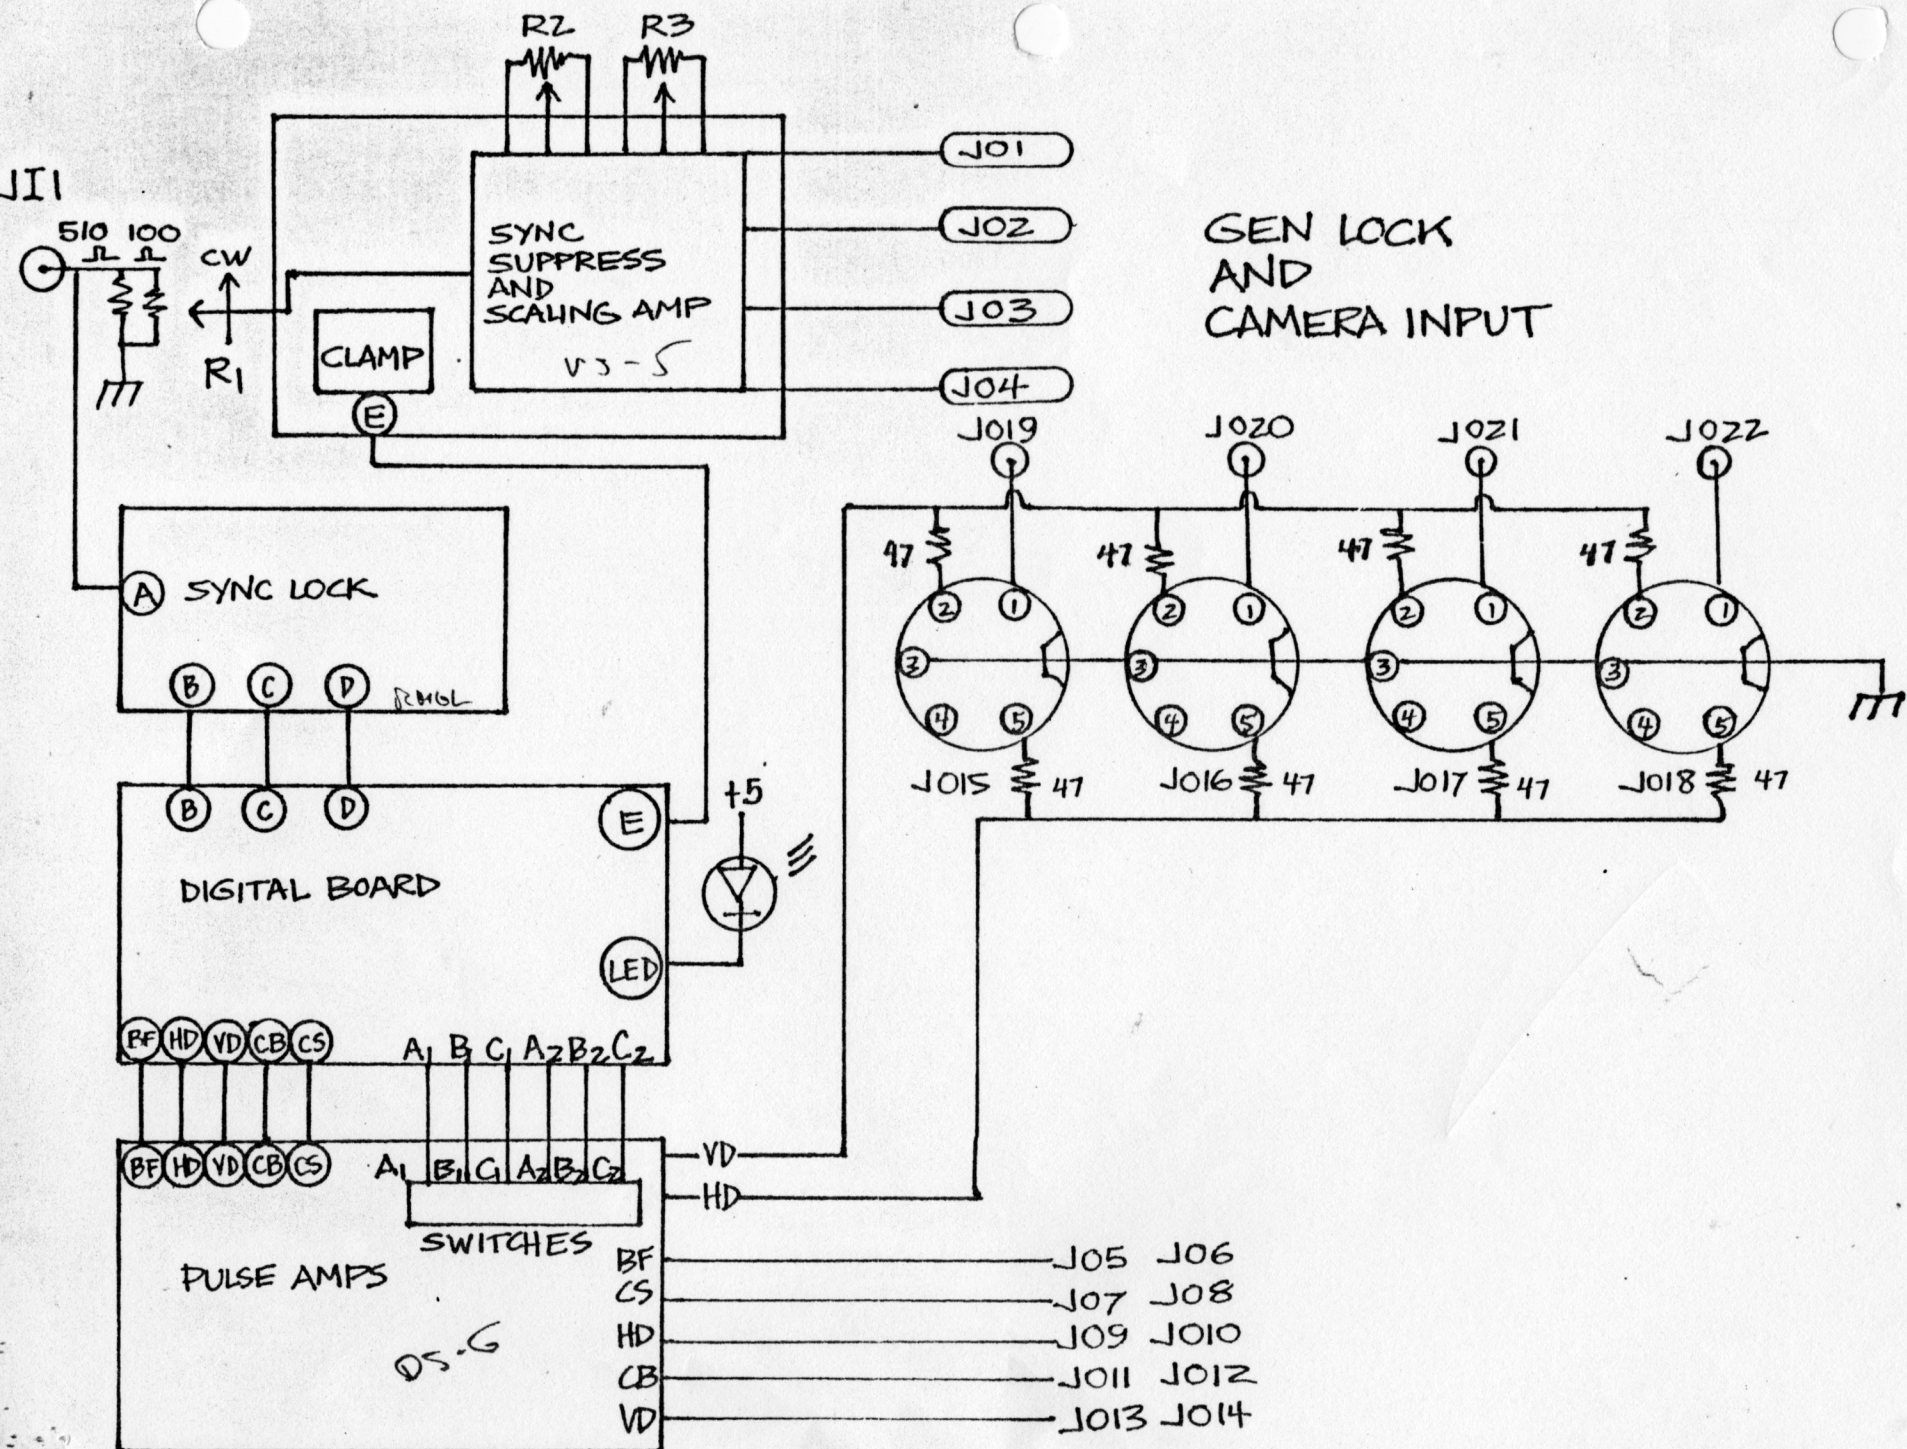 R2 R3
JI1
510 100
Ω Ω
CW
R1
SYNC
SUPPRESS
AND
SCALING AMP
VS-5
CLAMP
E
JO1
JO2
JO3
JO4
GEN LOCK
AND
CAMERA INPUT
JO19 JO20 JO21 JO22
47 47 47 47
2 1 2 1 2 1 2 1
3 3 3 3
4 5 4 5 4 5 4 5
JO15 47 JO16 47 JO17 47 JO18 47
A SYNC LOCK
B C D
B C D E
+5
DIGITAL BOARD
LED
BF HD VD CB CS A1 B1 C1 A2 B2 C2
BF HD VD CB CS A1 B1 C1 A2 B2 C2
VD
HD
SWITCHES
PULSE AMPS
DS-6
BF JO5 JO6
CS JO7 JO8
HD JO9 JO10
CB JO11 JO12
VD JO13 JO14